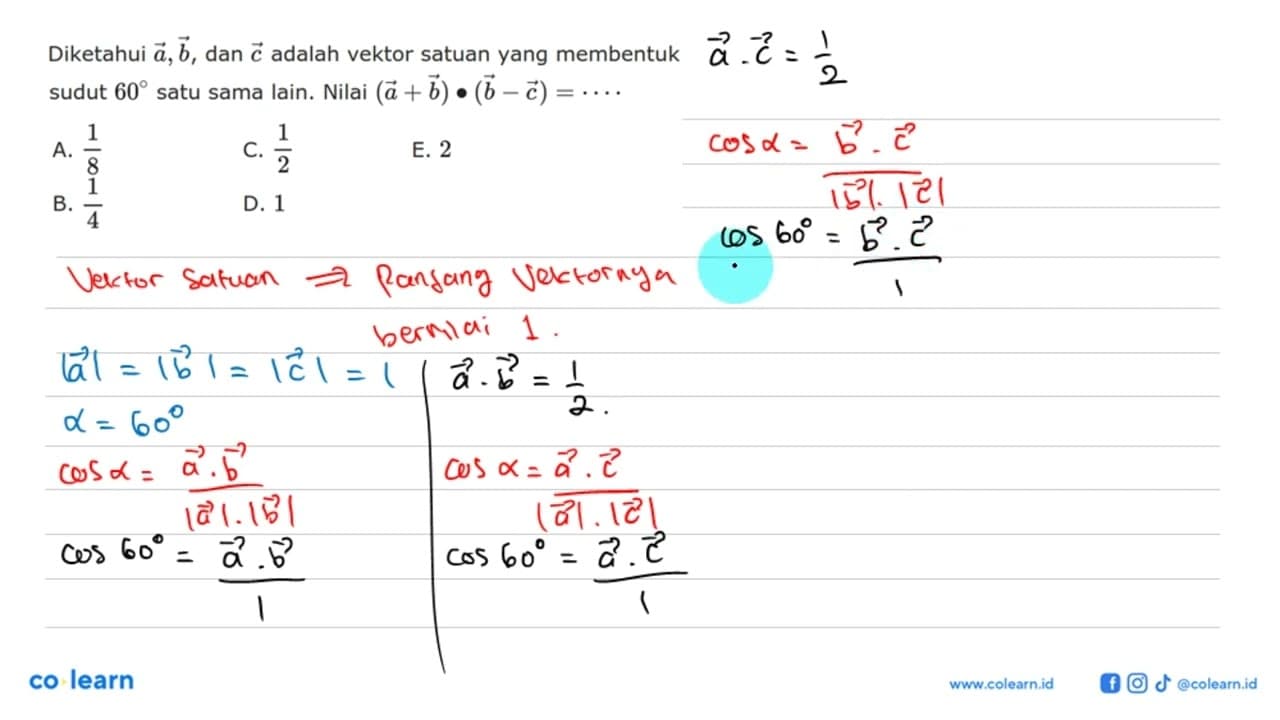 Diketahui a⃗, b⃗, dan c⃗ adalah vektor satuan yang membentuk
sudut 60° satu sama lain. Nilai (a⃗ + b⃗) • (b⃗ − c⃗) = ····
A. 1/8 C. 1/2 E. 2
B. 1/4 D. 1
Vektor Satuan ⇒ Panjang Vektornya
bernilai 1.
|a⃗| = |b⃗| = |c⃗| = 1
α = 60°
cos α = a⃗ . b⃗ / |a⃗| . |b⃗|
cos 60° = a⃗ . b⃗ / 1
a⃗ . b⃗ = 1/2.
cos α = a⃗ . c⃗ / |a⃗| . |c⃗|
cos 60° = a⃗ . c⃗ / 1
a⃗ . c⃗ = 1/2
cos α = b⃗ . c⃗ / |b⃗| . |c⃗|
cos 60° = b⃗ . c⃗ / 1
co learn
www.colearn.id @colearn.id